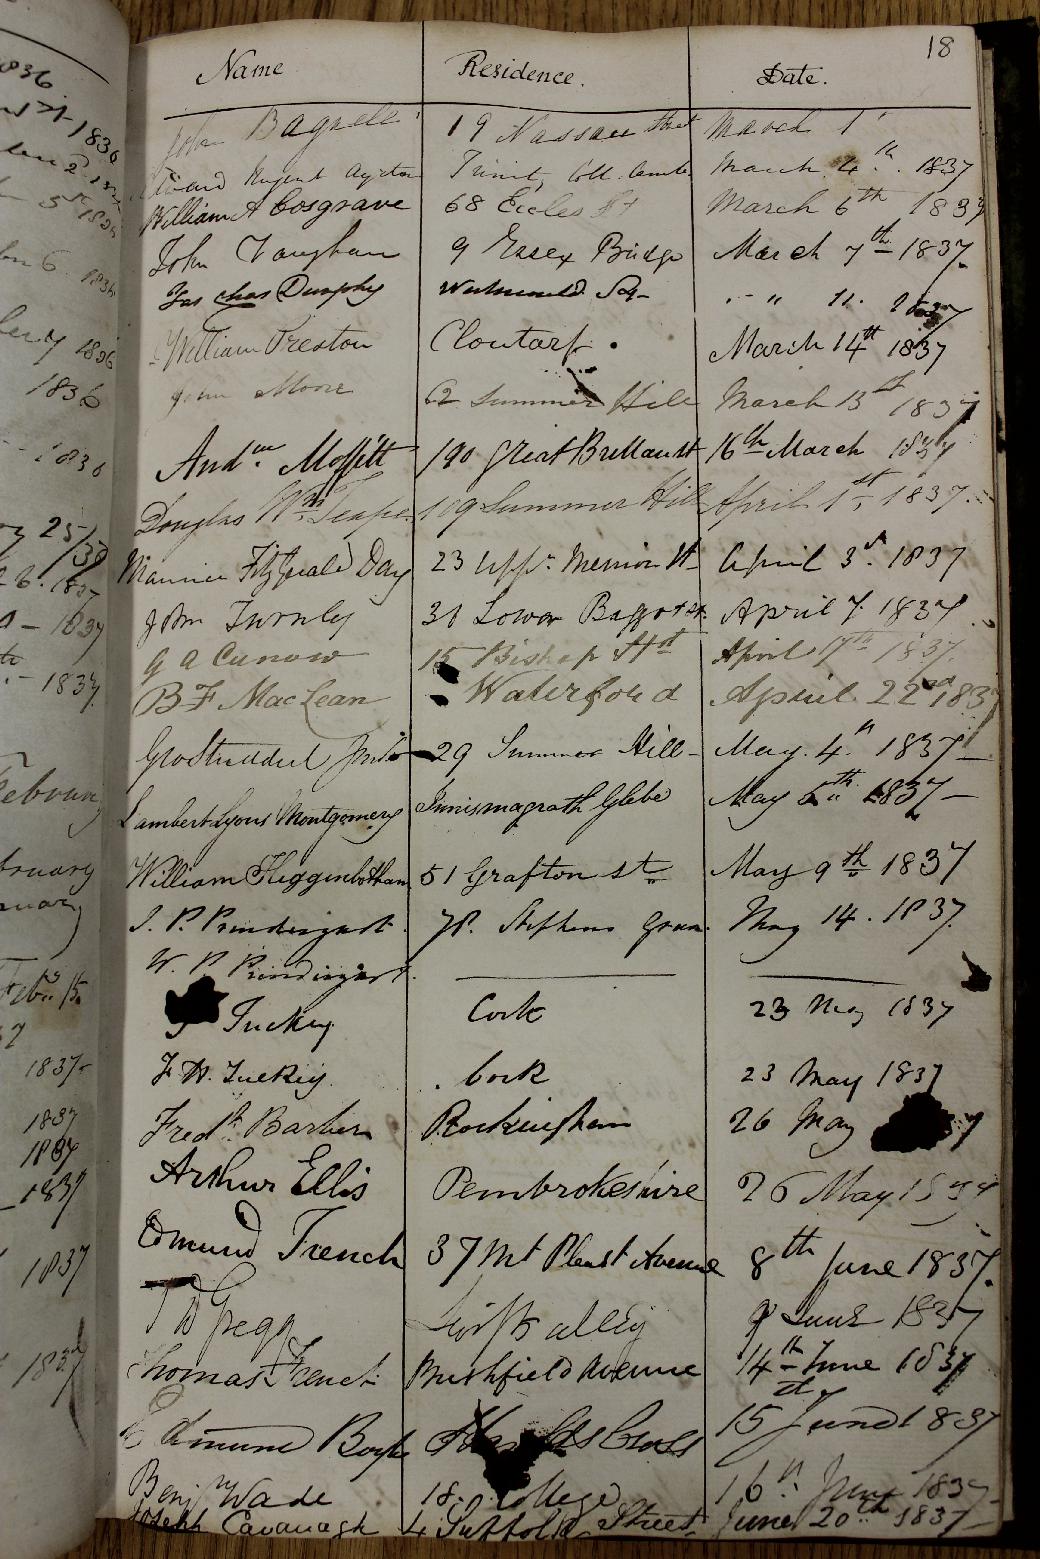 18
Name Residence. Date.
John Bagnell 19 Nassau Street March 1
Nugent Ayrton Trinity Coll. March 4th. 1837
William A Cosgrave 68 Eccles St March 6th 1837
John Vaughan 9 Essex Bridge March 7th 1837
Jas Chas Dunphy " " 11. 1837
William Preston Clontarf. March 14th 1837
John Moore 62 Summer Hill March 13 1837
Andw. Moffitt 190 Great Britain St 16th March 1837
Douglas Wm. 109 Summer Hill April 1st, 1837.
Maurice FitzGerald Day 23 Uppr. Merrion St April 3d. 1837
John Turnly 31 Lower Baggot St. April 7. 1837
G A Cunow 15 Bishop St April 17th 1837.
B F MacLean - Waterford April 22nd 1837
Geo Studdert Junior 29 Summer Hill - May. 4th 1837 -
Lambert Lyons Montgomery Innismagrath Glebe May 6th 1837 -
William Higginbotham 51 Grafton St. May 9th 1837
J. P. Prendergast. 78. Stephens Green. May 14. 1837.
W. P Prendergast.
Tuckey. Cork 23 May 1837
F. W. Tuckey. Cork 23 May 1837
Fredk. Barber Rockingham 26 May 7
Arthur Ellis Pembrokeshire 26 May 1837
Edmund French 37 Mt Pleast Avenue 8th June 1837.
T D Gregg Swifts alley 9 June 1837
Thomas French Rushfield Avenue 14th June 1837
Edmund Boyle Harolds Cross 15th June 1837
Benj Wade 18. College 16th June 1837
Joseph Cavanagh 4 Suffolk Street June 20th 1837